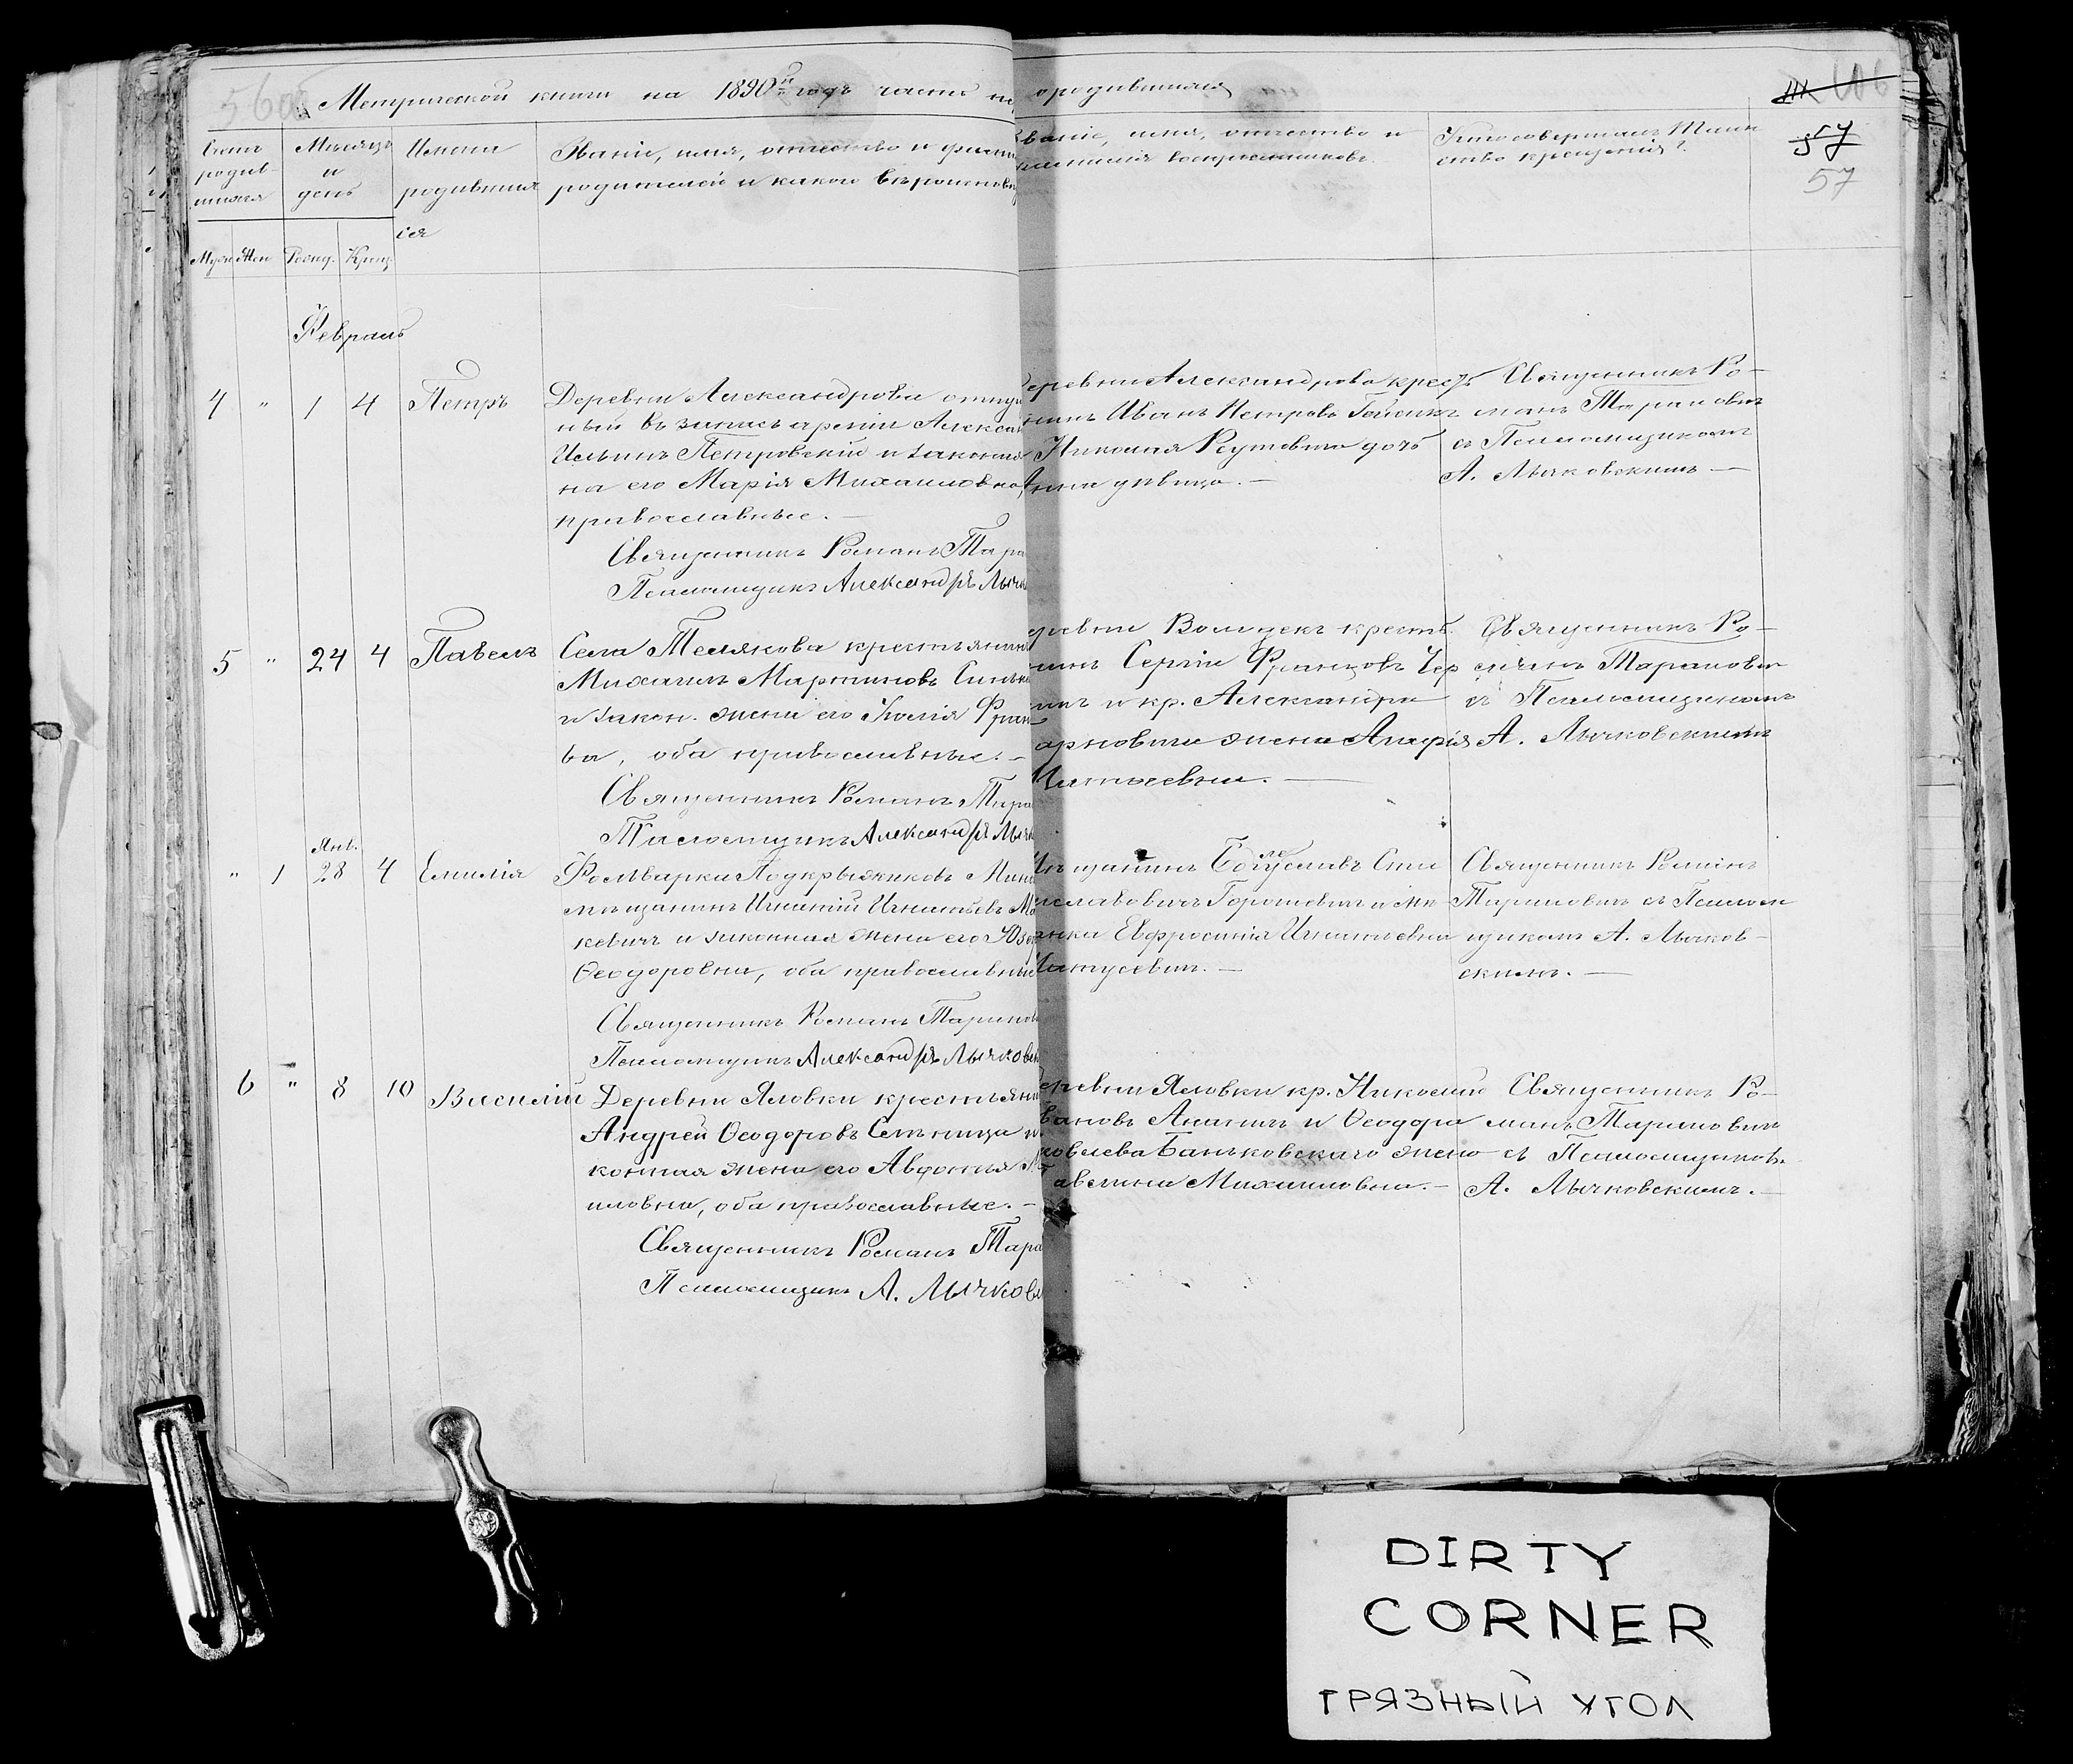 Метрической книги на 1890й годъ часть пе
о родившихся
106
57
57
Счетъ родив-шихся
Мѣсяцъ и день
Имена родившихся
Званіе, имя, отчество и фами
родителей и какого вѣроисповѣд
Званіе, имя, отчество и
фамилія воспріемниковъ.
Кто совершалъ Таин
ство крещенія?
Муж Жен Рожд. Крещ
Февраль
4 " 1 4 Петръ
Деревни Александрова отпу
ный въ запасъ арміи Алекса
Ильинъ Петровскій и законна
на его Марія Михаиловна
православные. —
Священникъ Романъ Тара
Псаломщикъ Александръ Лычк
деревни Александрова крест
нинъ Иванъ Петровъ
Николая дочь
Анна дѣвица. —
Священникъ Ро-
манъ Тарановичъ
съ Псаломщикомъ
А. Лычковскимъ —
5 " 24 4 Павелъ
Села Телякова крестьянинъ
Михаилъ Мартиновъ
и закон. жена его Юлія Фран
ва, оба православные. —
Священникъ Романъ Тара
Псаломщикъ Александръ Лычк
деревни крестья
нинъ Сергій Францовъ Чер
и кр. Александра
жена Марія
Матвѣевна. —
Священникъ Ро-
манъ Тарановичъ
съ Псаломщикомъ
А. Лычковскимъ
" 1 Янв. 28 4 Емилія
Фольварка Подкрыжиковъ Минс
мѣщанинъ Игнатій Игнатьевъ Ма
кевичъ и законная жена его Юзе
Ѳеодоровна, оба православные
Священникъ Романъ Таранов
Псаломщикъ Александръ Лычков
Мѣщанинъ Болеславъ Ста
ниславовичъ Горошевичъ и мѣ-
щанка Евфросинія Игнатьевна
Матусевичъ. —
Священникъ Романъ
Тарановичъ съ Псалом
щикомъ А. Лычков-
скимъ. —
6 " 8 10 Василій
Деревни Яловки крестьянин
Андрей Ѳеодоровъ и
конная жена его Авдотія М
иловна, оба православные. —
Священникъ Романъ Тара
Псаломщикъ А. Лычков
деревни Яловки кр. Николай
Ивановъ и Ѳеодора
Баньковскаго жена
Павелина Михаиловна. —
Священникъ Ро-
манъ Тарановичъ
съ Псаломщиком
А. Лычковскимъ. —
DIRTY
CORNER
ГРЯЗНЫЙ УГОЛ